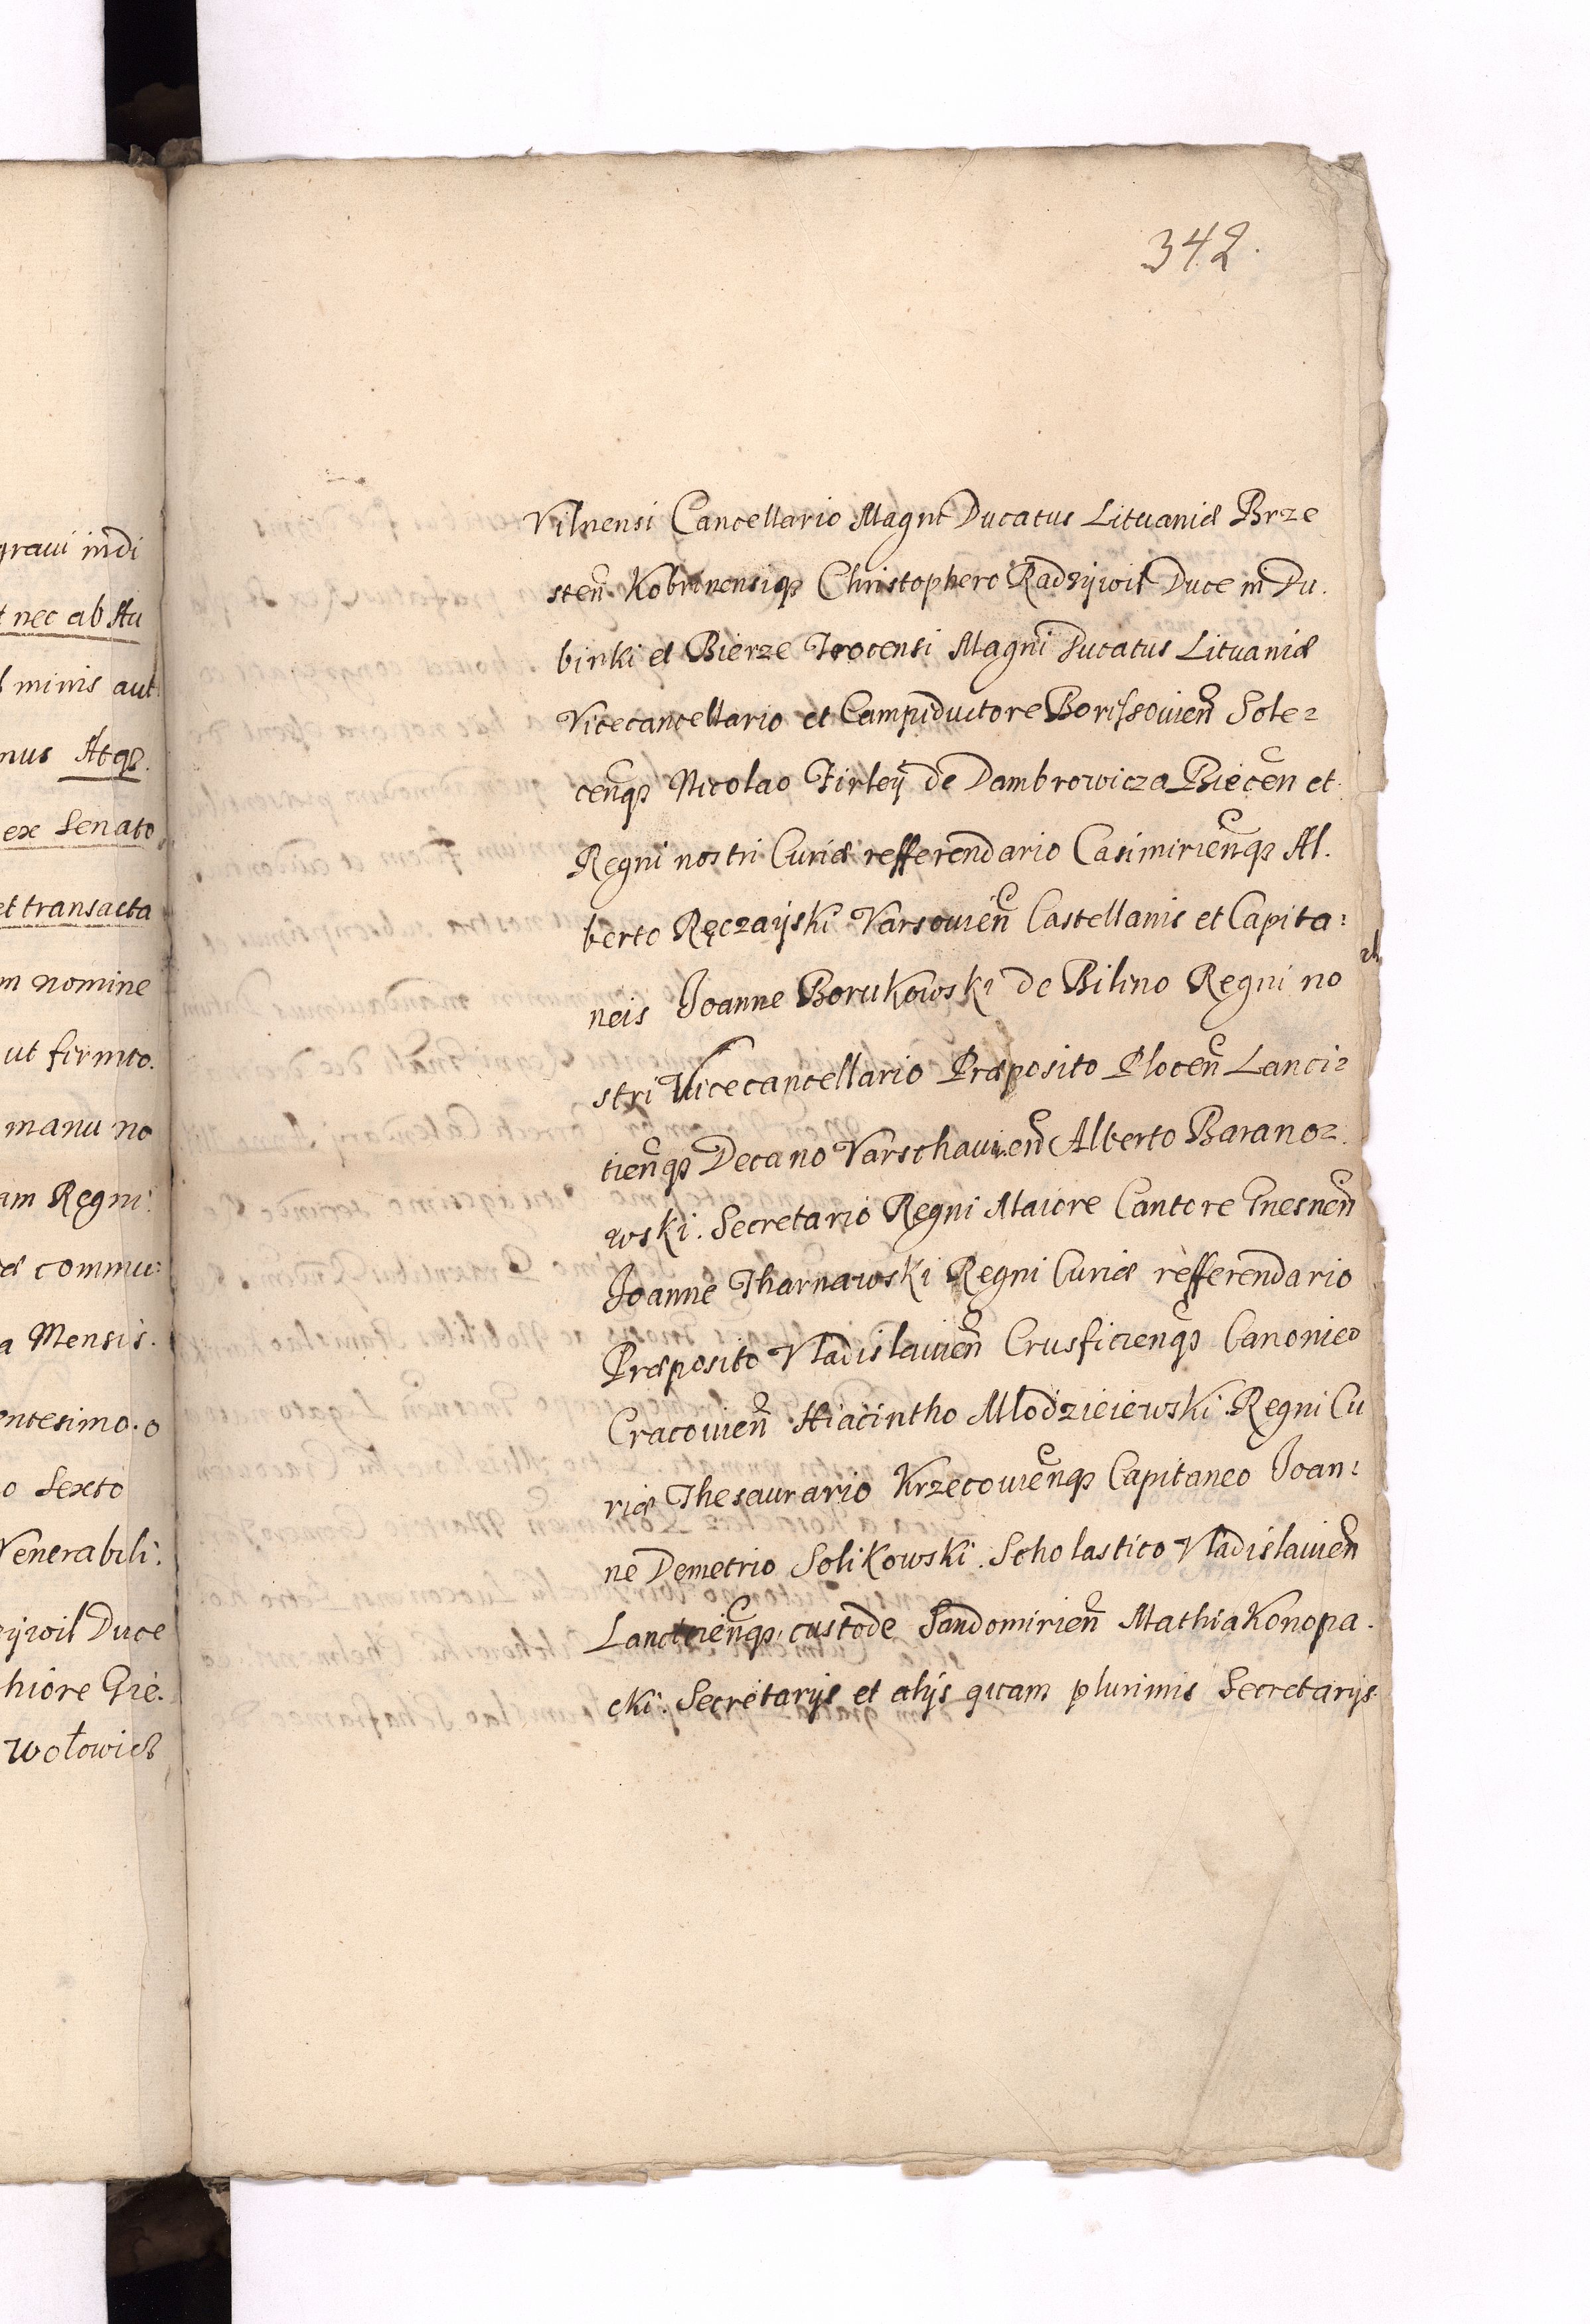 graui indi
t nec ab Au
minis aut
nus Atqȝ.
ex Senato
et transacta
m nomine
ut firmto.
manu no
am Regni:
commu:
a Mensis.
entesimo. o
o Sexto
Venerabili:
zijwil Duce
hiore Gie.
wołowicz
342.
Vilnensi Cancellario Magni Ducatus Lituaniæ Brze
steñ Kobrinensiqȝ Christophero Radzijwil Duce in Du.
binki et Bierze Trocensi Magni Ducatus Lituaniæ
Vicecancellario et Campiductore Borissouieñ Sole=
ceñqȝ Nicolao Firleij de Dambrowicza Biecen et
Regni nostri Curiæ refferendario Casimirieñqȝ Al.
berto Ręczaijski Varsouieñ Castellanis et Capita=
neis Joanne Borukowski de Bilino Regni no
stri Vicecancellario Præposito Ploceñ Lanci=
tieñqȝ Decano Varschauieñ Alberto Barano=
wski. Secretario Regni Maiore Cantore Gnesneñ
Joanne Tharnawski Regni Curiæ refferendario
Præposito Vladislauieñ Crusficieñqȝ Canonico
Cracouieñ Hiacintho Mlodzieiewski Regni Cu
riæ Thesaurario Krzecouieñqȝ Capitaneo Joan=
ne Demetrio Solikowski. Scholastico Vladislauieñ
Lancicieñqȝ, custode Sandomirieñ Mathia Konopa.
cki. Secretarijs et alijs quam plurimis Secretarijs.